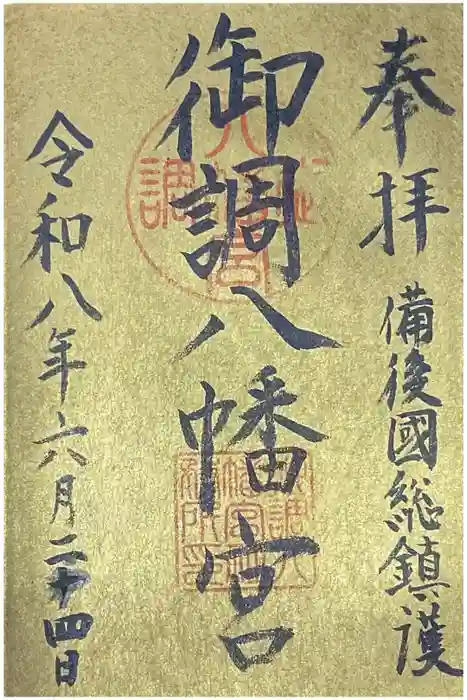 奉拝 備後國総鎮護
御調八幡宮
令和八年六月二十四日